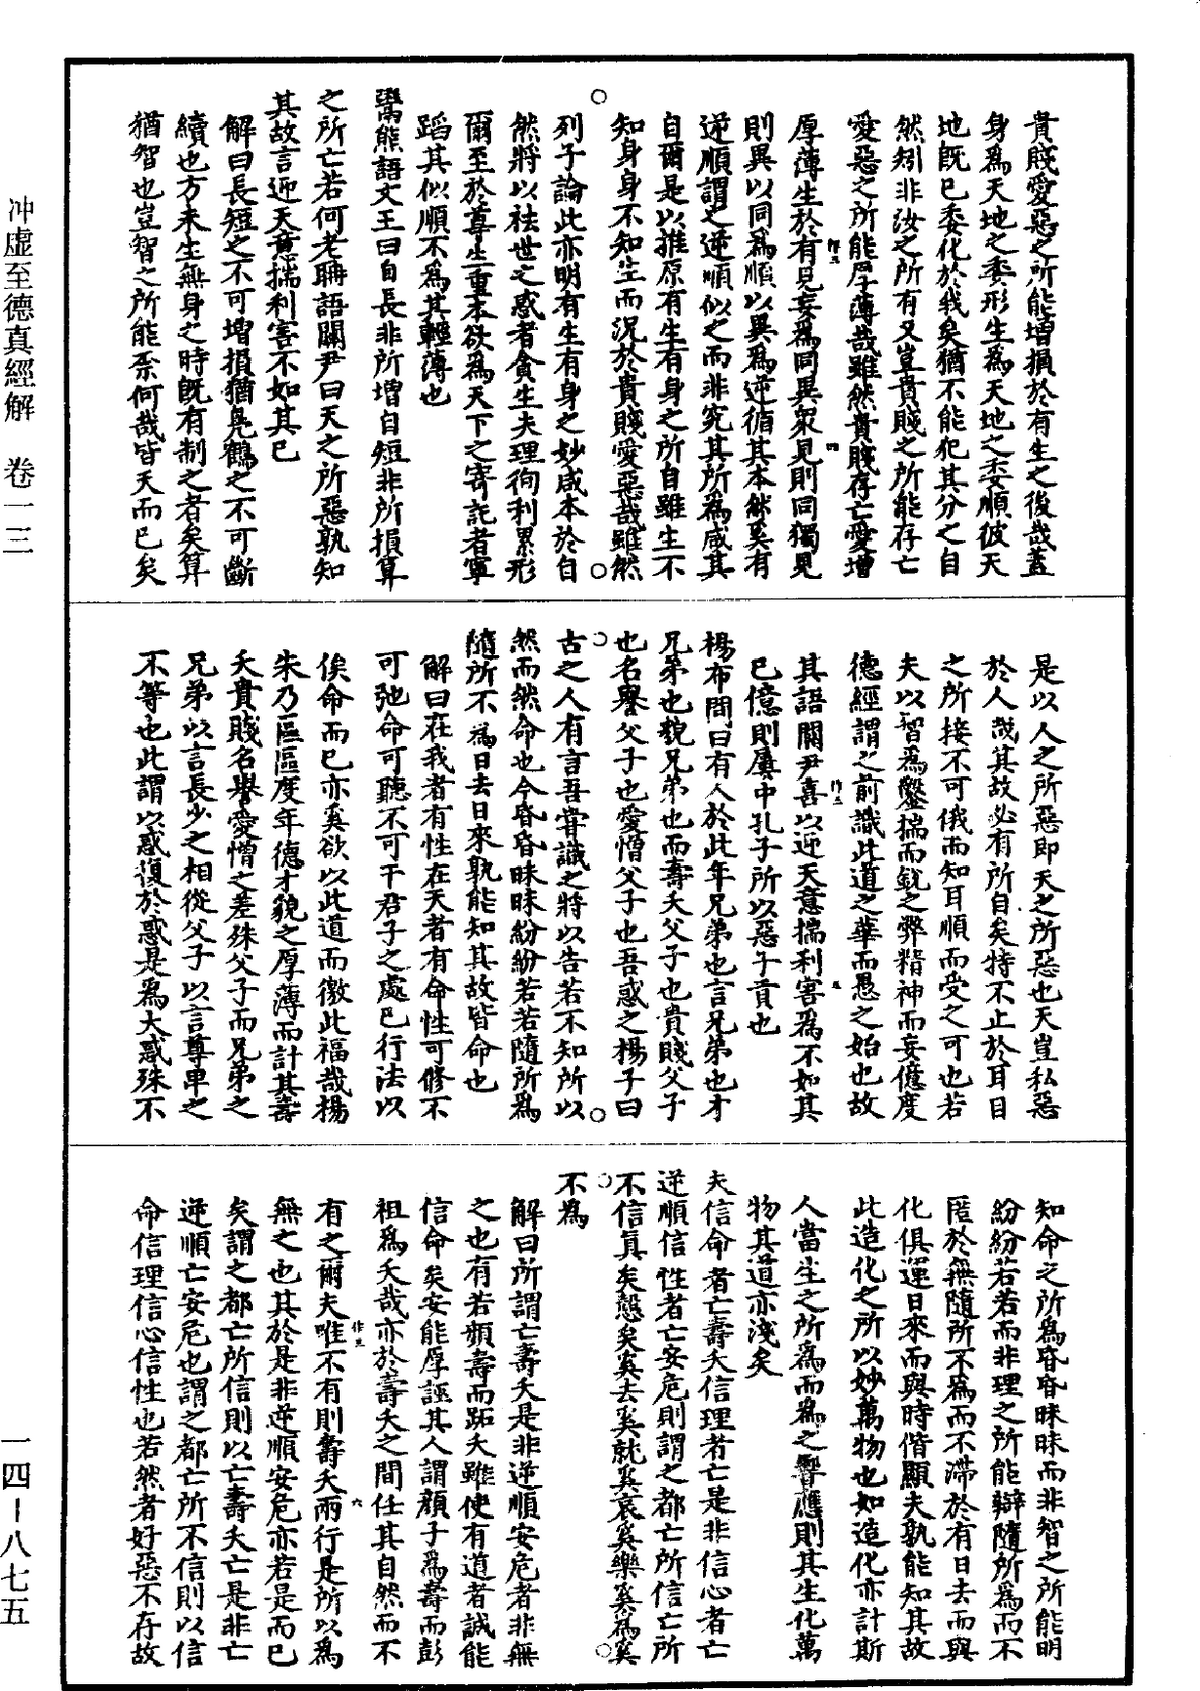 貴賤愛惡之所能增損於有生之後哉蓋
身爲天地之委形生爲天地之委順彼天
地既已委化於我矣猶不能犯其分之自
然矧非汝之所有又豈貴賤之所能存亡
愛惡之所能厚薄哉雖然貴賤存亡愛憎
厚薄生於有見妄爲同異衆見則同獨見
則異以同爲順以異爲逆循其本然奚有
逆順謂之逆順似之而非究其所爲咸其
自爾是以推原有生有身之所自雖生不
知身身不知生而況於貴賤愛惡哉雖然
列子論此亦明有生有身之妙咸本於自
然將以祛世之惑者貪生夫理徇利累形
爾至於尊生重本欲爲天下之寄託者寧
蹈其似順不爲其輕薄也
鬻熊語文王曰自長非所增自短非所損算
之所亡若何老聃語關尹曰天之所惡孰知
其故言迎天意揣利害不如其已
解曰長短之不可增損猶鳧鶴之不可斷
續也方未生無身之時既有制之者矣算
猶智也豈智之所能柰何哉皆天而已矣
是以人之所惡即天之所惡也天豈私惡
於人哉其故必有所自矣特不止於耳目
之所接不可俄而知耳順而受之可也若
夫以智爲鑿揣而銳之弊精神而妄億度
德經謂之前識此道之華而愚之始也故
其語關尹喜以迎天意揣利害爲不如其
已億則屢中孔子所以惡子貢也
楊布問曰有人於此年兄弟也言兄弟也才
兄弟也貌兄弟也而壽夭父子也貴賤父子
也名譽父子也愛憎父子也吾惑之楊子曰
古之人有言吾嘗識之將以告若不知所以
然而然命也今昏昏昧昧紛紛若若隨所爲
隨所不爲日去日來孰能知其故皆命也
解曰在我者有性在天者有命性可修不
可弛命可聽不可干君子之處已行法以
俟命而已亦奚欲以此道而徼此福哉楊
朱乃區區度年德才貌之厚薄而計其壽
夭貴賤名譽愛憎之差殊父子而兄弟之
兄弟以言長少之相從父子以言尊卑之
不等也此謂以惑復於惑是爲大惑殊不
知命之所爲昏昏昧昧而非智之所能明
紛紛若若而非理之所能辯隨所爲而不
匿於無隨所不爲而不滯於有日去而與
化俱運日來而與時偕顯夫孰能知其故
此造化之所以妙萬物也如造化亦計斯
人當生之所爲而爲之響應則其生化萬
物其道亦淺矣
夫信命者亡壽夭信理者亡是非信心者亡
逆順信性者亡安危則謂之都亡所信亡所
不信眞矣慤矣奚去奚就奚哀奚樂奚爲奚
不爲
解曰所謂亡壽夭是非逆順安危者非無
之也有若顏壽而跖夭雖使有道者誠能
信命矣安能厚誣其人謂顏子爲壽而彭
祖爲夭哉亦於壽夭之間任其自然而不
有之爾夫唯不有則壽夭兩行是所以爲
無之也其於是非逆順安危亦若是而已
矣謂之都亡所信則以亡壽夭亡是非亡
逆順亡安危也謂之都亡所不信則以信
命信理信心信性也若然者好惡不存故
冲虛至德真經解　卷一三
一四-八七五